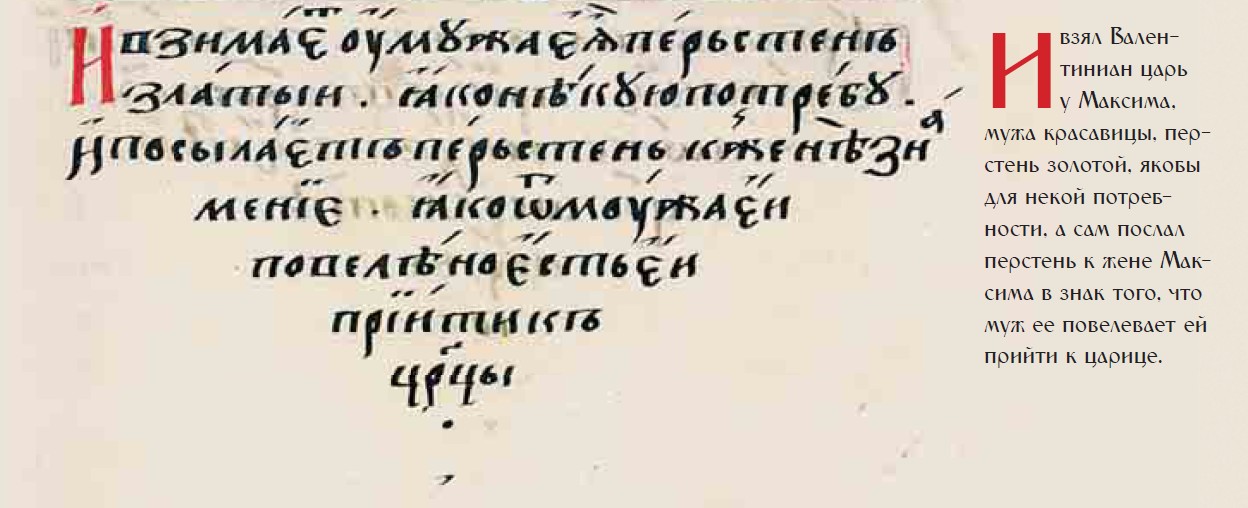 И҆взима́етъ ѹ҆му́жа є҆ѧ̀ пе́рьстень
злат́ыи . ꙗ҆́ко нѣ́кую потре́бу .
и҆посыла́єтъ пе́рьстень к же нѣ̀ зна́
менїе . ꙗ҆́ко ѿ мѹ́жа є҆и
повелѣ́но є҆́сть є҆и
прїи́ти къ
цр҃цы
И взял Вален-
тиниан царь
у Максима,
мужа красавицы, пер-
стень золотой, якобы
для некой потреб-
ности, а сам послал
перстень к жене Мак-
сима в знак того, что
муж ее повелевает ей
прийти к царице.